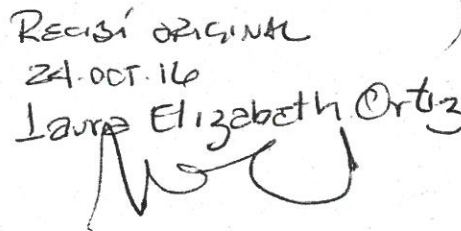 Recibí original
24.oct.16
Laura Elizabeth Ortiz